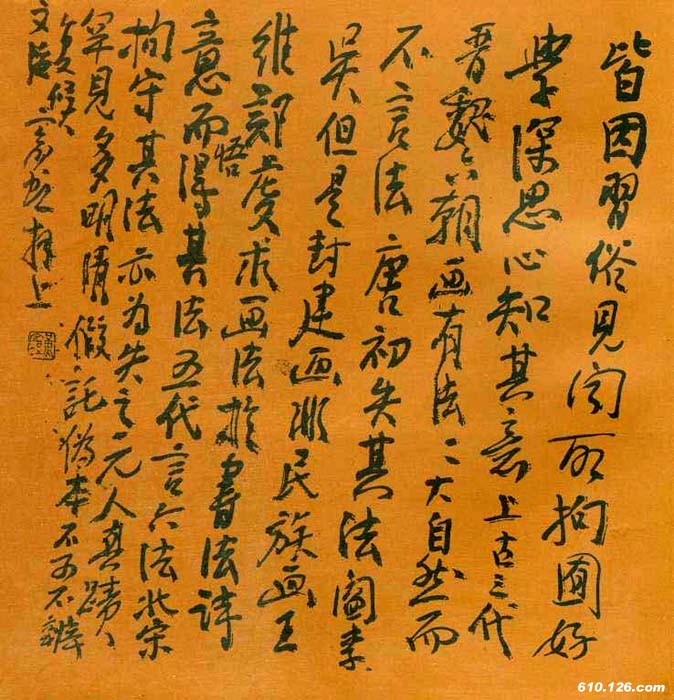 皆因習俗見聞所拘囿好
學深思心知其意上古三代
晋魏六朝画有法〻大自然而
不言法唐初失其法閻李
吴但是封建画非民族画王
維鄭虔求画法於書法詩
意而悟得其法五代言六法北宋
拘守其法亦为失之元人真蹟
罕見多明清假託偽本不可不辨
宾虹拜上
610.126.com